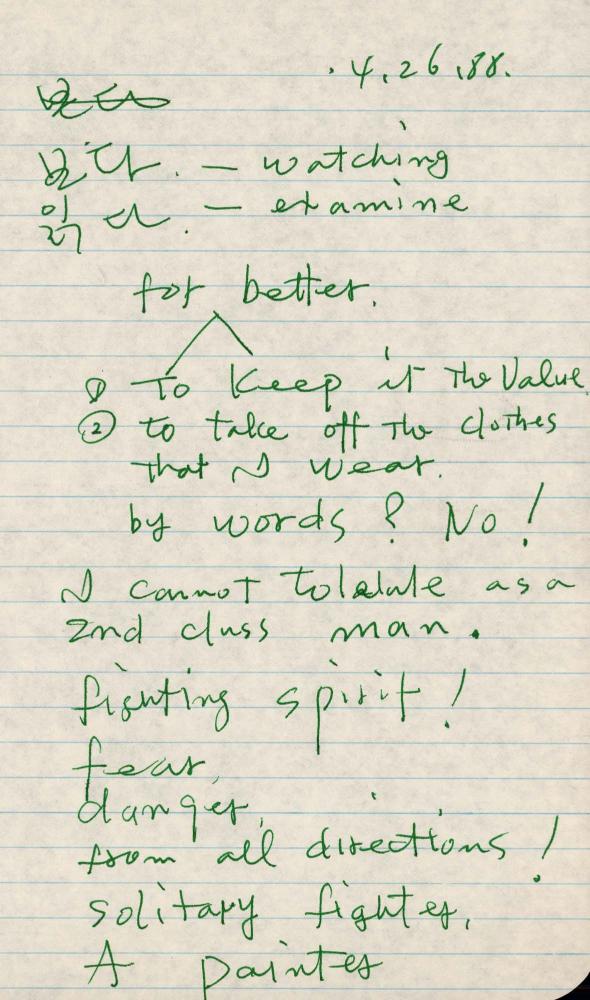 . 4. 26. 88.
보다. — watching
읽다. — examine
for better.
① To Keep it The Value
② to take off The clothes
that I wear.
by words? No!
I cannot as a
2nd class man.
fighting spirit!
fear,
danger,
from all directions!
solitary fighter,
A painter